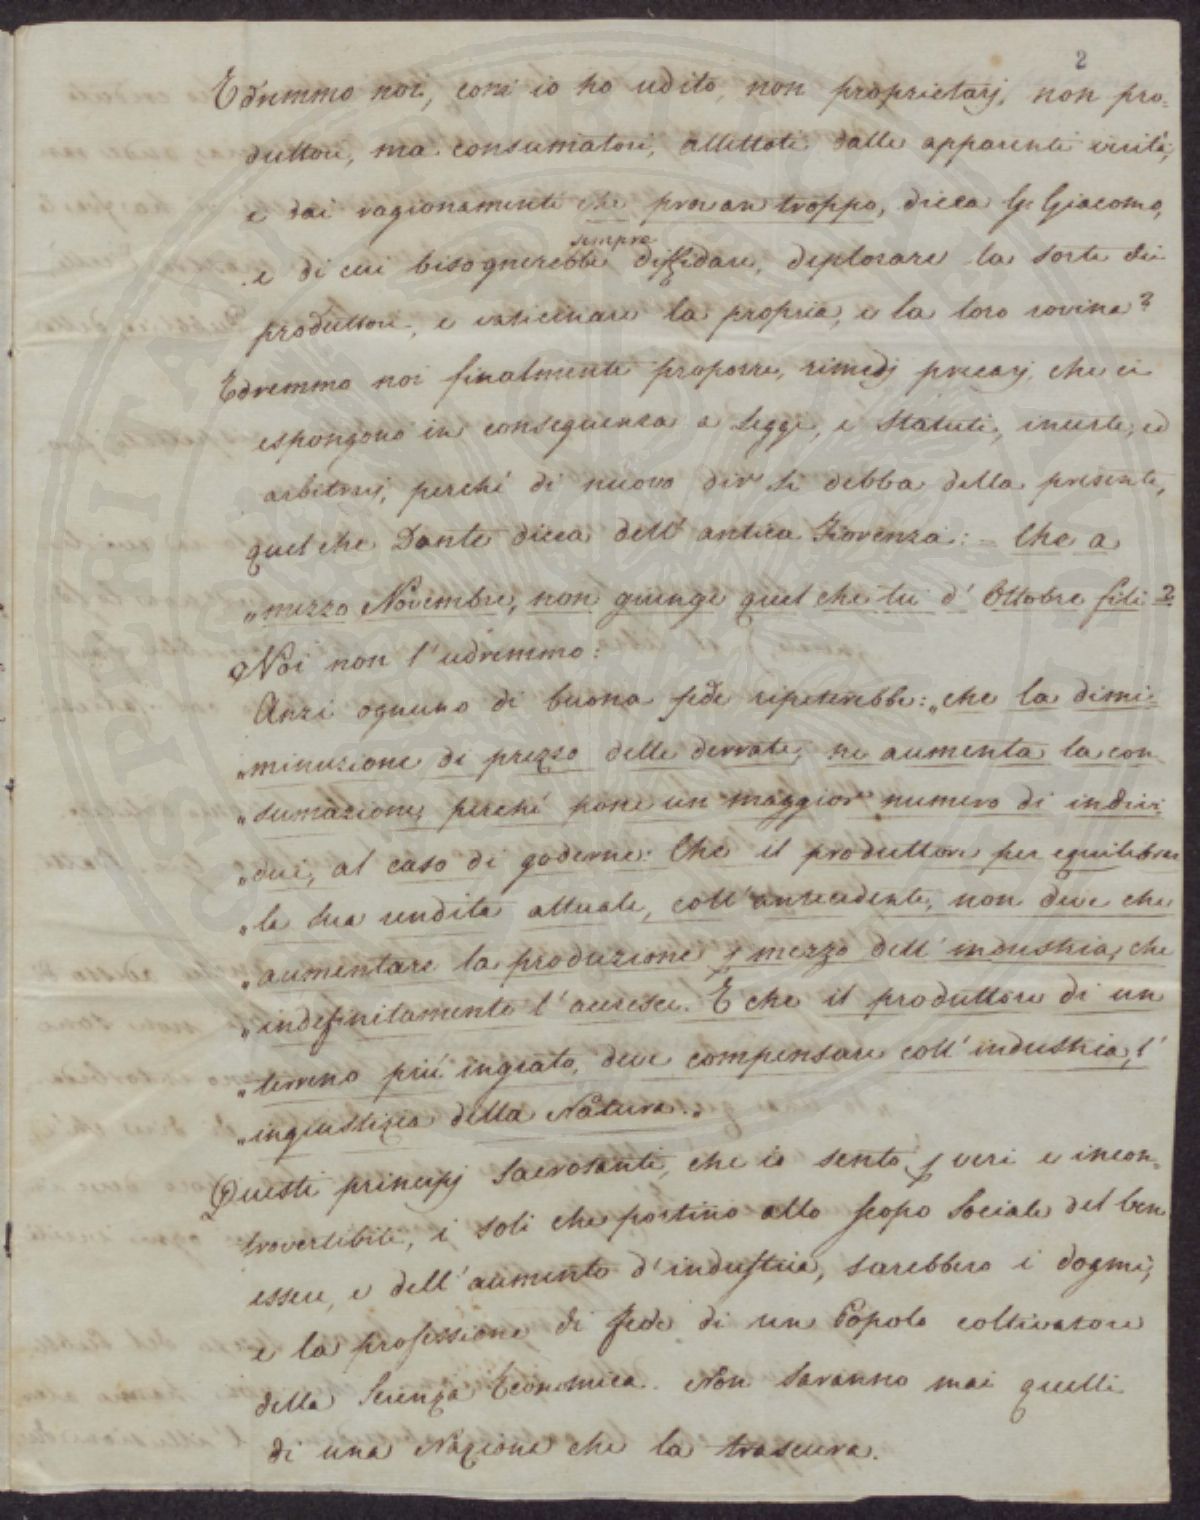 2
Udremmo noi, com' io ho udito, non proprietarj, non pro=
duttori, ma consumatori, allettati dalle apparenti verità,
e dai ragionamenti che provan troppo, dicea G. Giacomo,
e di cui bisognerebbe sempre diffidare, deplorare la sorte dei
produttori, e vaticinare la propria, e la loro rovina?
Udremmo noi finalmente proporre, rimedj precarj, che ci
espongono in conseguenza a Leggi, e Statuti, incerti, ed
arbitrarj, perché di nuovo dir si debba della presente,
quel che Dante dicea dell' antica Fiorenza: = Che a
„ mezzo Novembre, non giunge quel che tu d' Ottobre fili =?
Noi non l' udremmo:
Anzi ognuno di buona fede ripeterebbe: „ che la dimi=
„ minuzione di prezzo delle derrate, ne aumenta la con
„ sumazione, perché pone un maggior numero di indivi=
„ dui, al caso di goderne: Che il produttore per equilibrar
„ la sua rendita attuale, coll' antecedente, non deve che
„ aumentare la produzione p mezzo dell' industria, che
„ indefinitamente l' accresce. E che il produttore di un
„ terreno più ingrato, deve compensare coll' industria, l'
„ ingiustizia della Natura. „
Questi principj sacrosanti, che io sento p veri e incon=
trovertibili, i soli che portino allo scopo Sociale del ben
essere, e dell' aumento d' industria, sarebbero i dogmi,
e la professione di fede di un Popolo coltivatore
della Scienza Economica. Non saranno mai quelli
di una Nazione che la trascura.